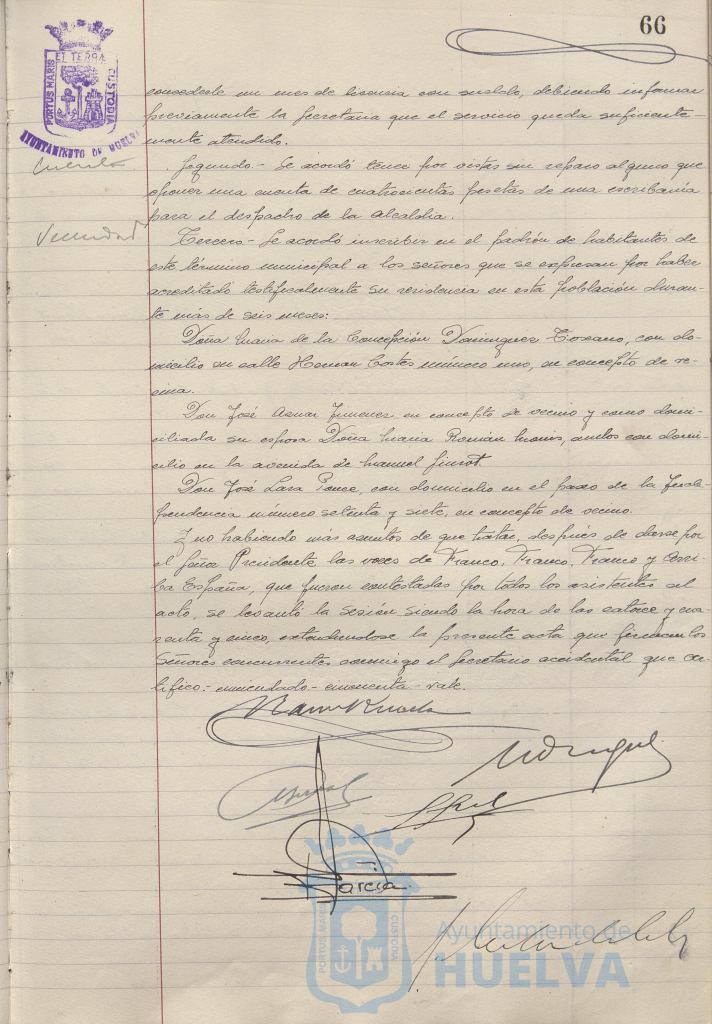 66
PORTUS MARIS
ET TERRÆ
CUSTODIA
AYUNTAMIENTO DE HUELVA
concederle un mes de licencia con sueldo, debiendo informar
previamente la Secretaria que el servicio queda suficiente-
mente atendido.
Cuenta
Segundo.- Se acordó tener por vistas sin reparo alguno que
oponer una cuenta de cuatrocientas pesetas de una escribanía
para el despacho de la Alcaldia.
Vecindad
Tercero.- Se acordó inscribir en el padrón de habitantes de
este término municipal a los señores que se expresan por haber
acreditado testificalmente su residencia en esta población duran-
te más de seis meses:
Doña Maria de la Concepción Dominguez Toscano, con do-
micilio en calle Hernan Cortes número uno, en concepto de ve-
cina.
Don José Aznar Jimenez en concepto de vecino y como domi-
ciliada su esposa Doña Maria Román, ambos con domi-
cilio en la avenida de Manuel Siurot.
Don José Lara Ponce, con domicilio en el paseo de la Inde-
pendencia número setenta y siete, en concepto de vecino.
Y no habiendo más asuntos de que tratar, después de darse por
el Señor Presidente las voces de Franco, Franco, Franco y Arri-
ba España, que fueron contestadas por todos los asistentes al
acto, se levantó la sesión siendo la hora de las catorce y cua-
renta y cinco, extendiendose la presente acta que firman los
Señores concurrentes conmigo el Secretario accidental que cer-
tifico: enmendado - cincuenta - vale.
Garcia
PORTUS MARIS
CUSTODIA
Ayuntamiento de
HUELVA